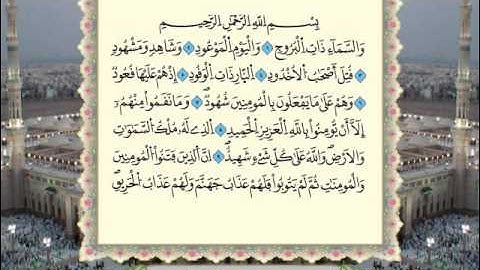 بِسْمِ اللّٰهِ الرَّحْمٰنِ الرَّحِيْمِ
وَالسَّمَاۤءِ ذَاتِ الْبُرُوْجِ ۙ١ وَالْيَوْمِ الْمَوْعُوْدِ ۙ٢ وَشَاهِدٍ وَّمَشْهُوْدٍ
٣ قُتِلَ اَصْحٰبُ الْاُخْدُوْدِ ۙ٤ النَّارِ ذَاتِ الْوَقُوْدِ ۙ٥ اِذْ هُمْ عَلَيْهَا قُعُوْدٌ
٦ وَّهُمْ عَلٰى مَا يَفْعَلُوْنَ بِالْمُؤْمِنِيْنَ شُهُوْدٌ ۗ٧ وَمَا نَقَمُوْا مِنْهُمْ
اِلَّاۤ اَنْ يُّؤْمِنُوْا بِاللّٰهِ الْعَزِيْزِ الْحَمِيْدِ ۙ٨ الَّذِيْ لَهٗ مُلْكُ السَّمٰوٰتِ
وَالْاَرْضِ ۗ وَاللّٰهُ عَلٰى كُلِّ شَيْءٍ شَهِيْدٌ ۗ٩ اِنَّ الَّذِيْنَ فَتَنُوا الْمُؤْمِنِيْنَ
وَالْمُؤْمِنٰتِ ثُمَّ لَمْ يَتُوْبُوْا فَلَهُمْ عَذَابُ جَهَنَّمَ وَلَهُمْ عَذَابُ الْحَرِيْقِ ۗ